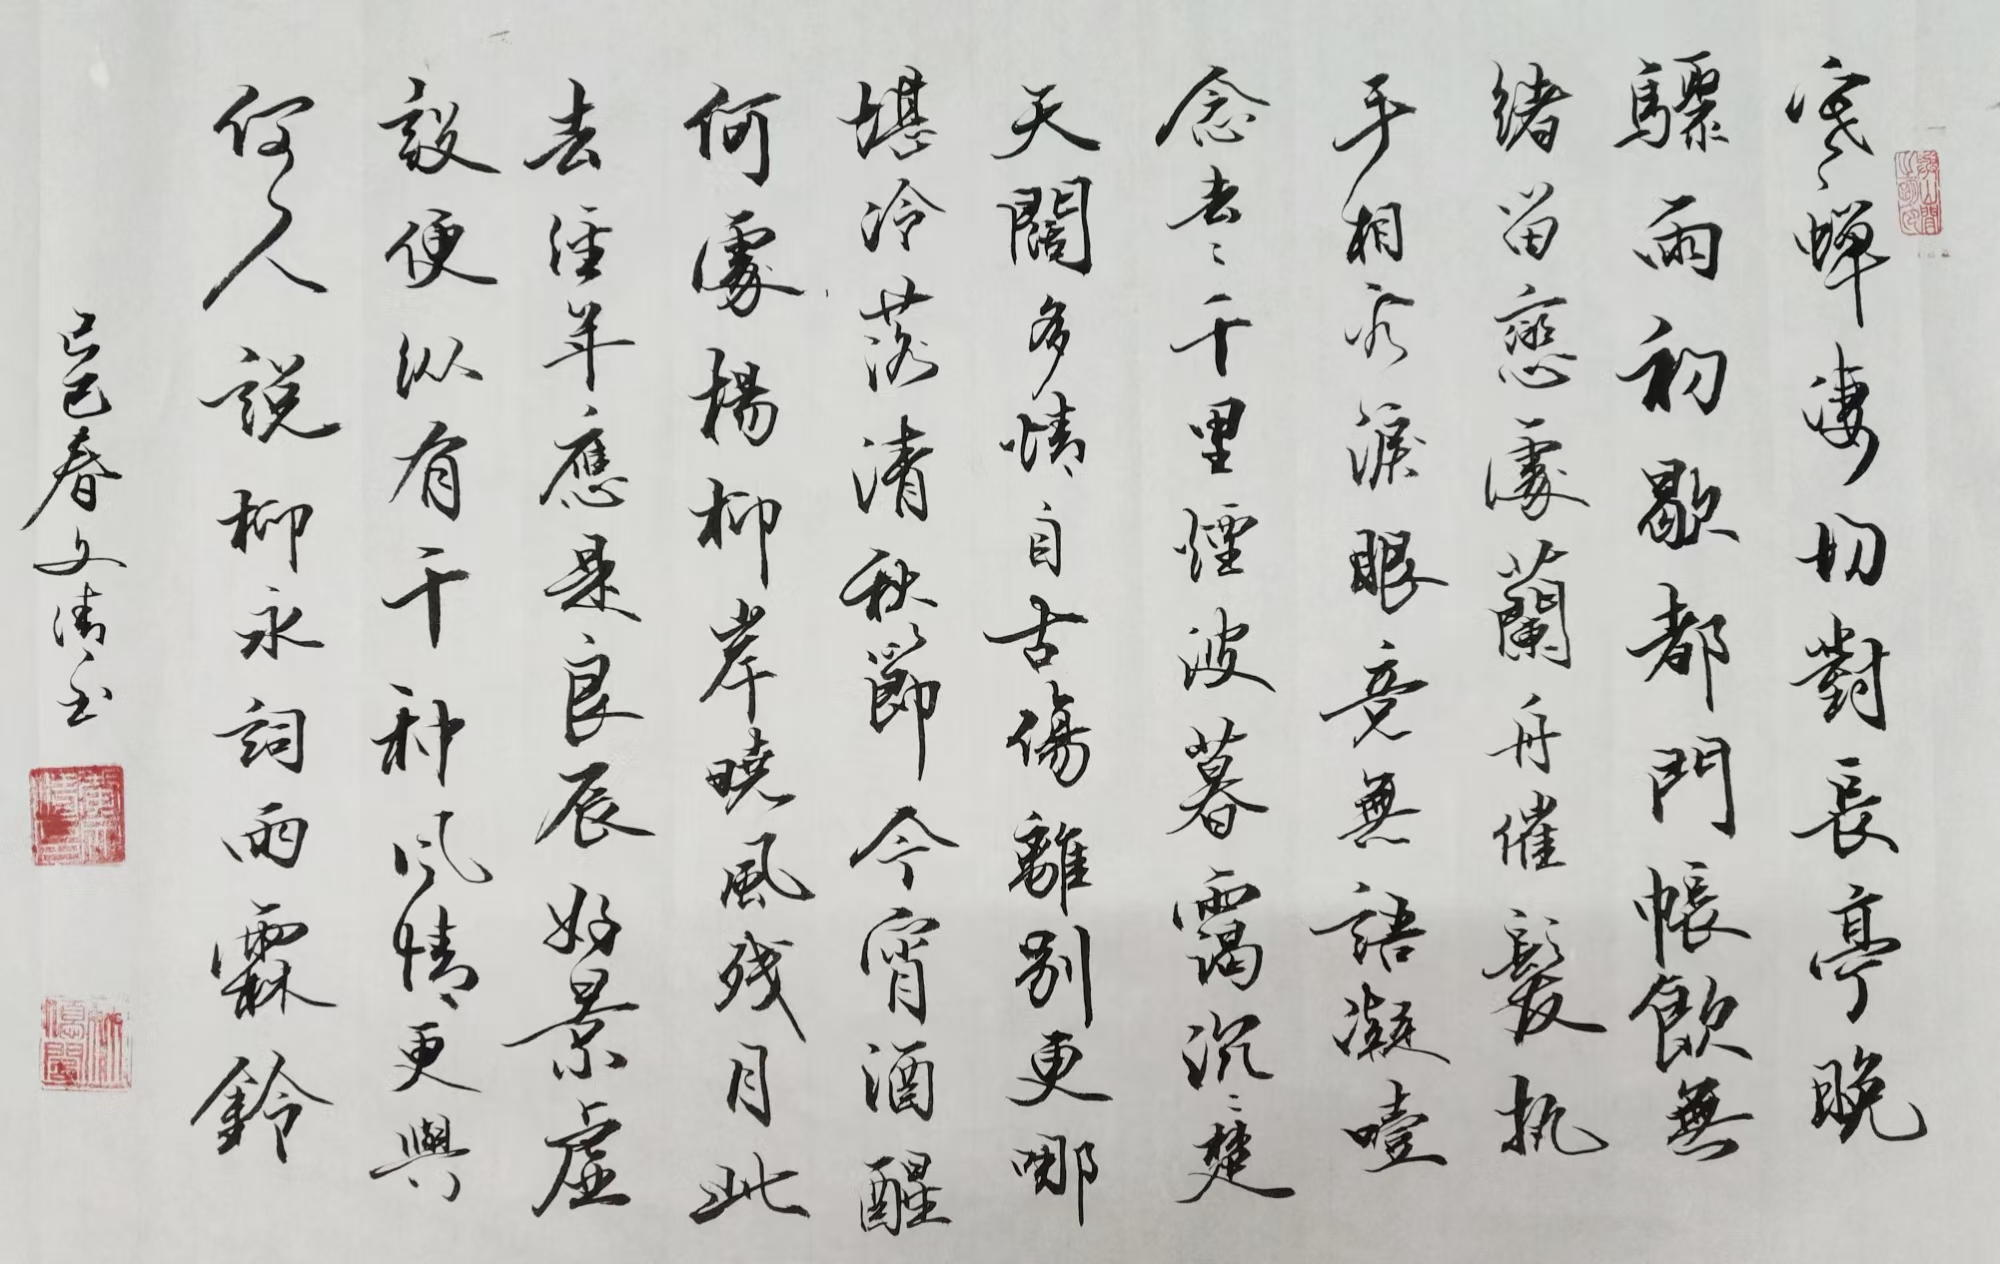 寒蝉淒切對長亭晚
驟雨初歇都門帳飲無
緒留戀處蘭舟催發執
手相看淚眼竟無語凝噎
念去〻千里煙波暮靄沉〻楚
天闊多情自古傷離別更哪
堪冷落清秋節今宵酒醒
何處楊柳岸曉風残月此
去經年應是良辰好景虛
設便纵有千种風情更與
何人說柳永詞雨霖鈴
己巳春文清书